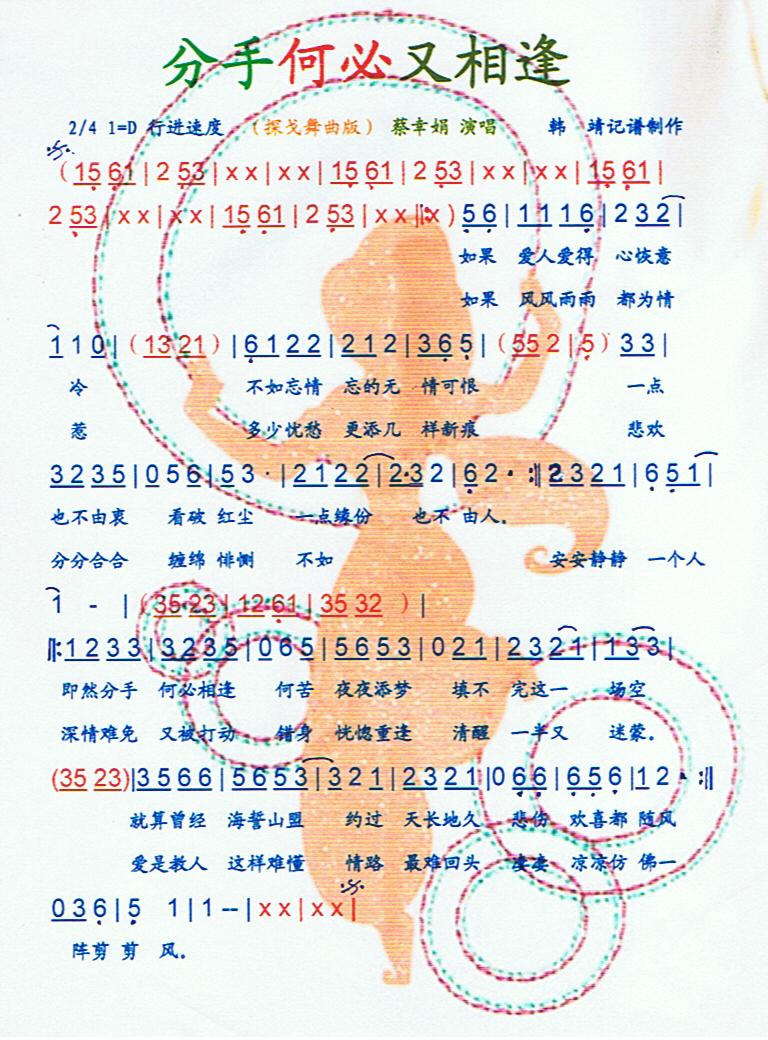 分手何必又相逢
2/4 1=D 行进速度 （探戈舞曲版） 蔡幸娟 演唱 韩 靖记谱制作
（15 61 | 2 53 | x x | x x | 15 61 | 2 53 | x x | x x | 15 61 |
2 53 | x x | x x | 15 61 | 2 53 | x x :‖: x ) 5 6 | 1 1 1 6 | 2 3 2 |
如果 爱人爱得 心恢意
如果 风风雨雨 都为情
1 1 0 |（13 21）| 6 1 2 2 | 2 1 2 | 3 6 5 |（55 2 | 5）3 3 |
冷 不如忘情 忘的无 情可恨 一点
惹 多少忧愁 更添几 样新痕 悲欢
3 2 3 5 | 0 5 6 | 5 3 · | 2 1 2 2 | 2·3 2 | 6 2 · :‖ 2 3 2 1 | 6 5 1 |
也不由衷 看破 红尘 一点缘份 也不 由人。
分分合合 缠绵 悱恻 不如 安安静静 一个人
1 - |（35 23 | 12 61 | 35 32 ）|
‖: 1 2 3 3 | 3 2 3 5 | 0 6 5 | 5 6 5 3 | 0 2 1 | 2 3 2 1 | 1 3 3 |
即然分手 何必相逢 何苦 夜夜添梦 填不 完这一 场空
深情难免 又被打动 错身 恍惚重逢 清醒 一半又 迷蒙。
(35 23) | 3 5 6 6 | 5 6 5 3 | 3 2 1 | 2 3 2 1 | 0 6 6 | 6 5 6 | 1 2 · :‖
就算曾经 海誓山盟 约过 天长地久 悲伤 欢喜都 随风
爱是教人 这样难懂 情路 最难回头 凄凄 凉凉仿 佛一
0 3 6 | 5 1 | 1 -- | x x | x x |
阵剪 剪 风。